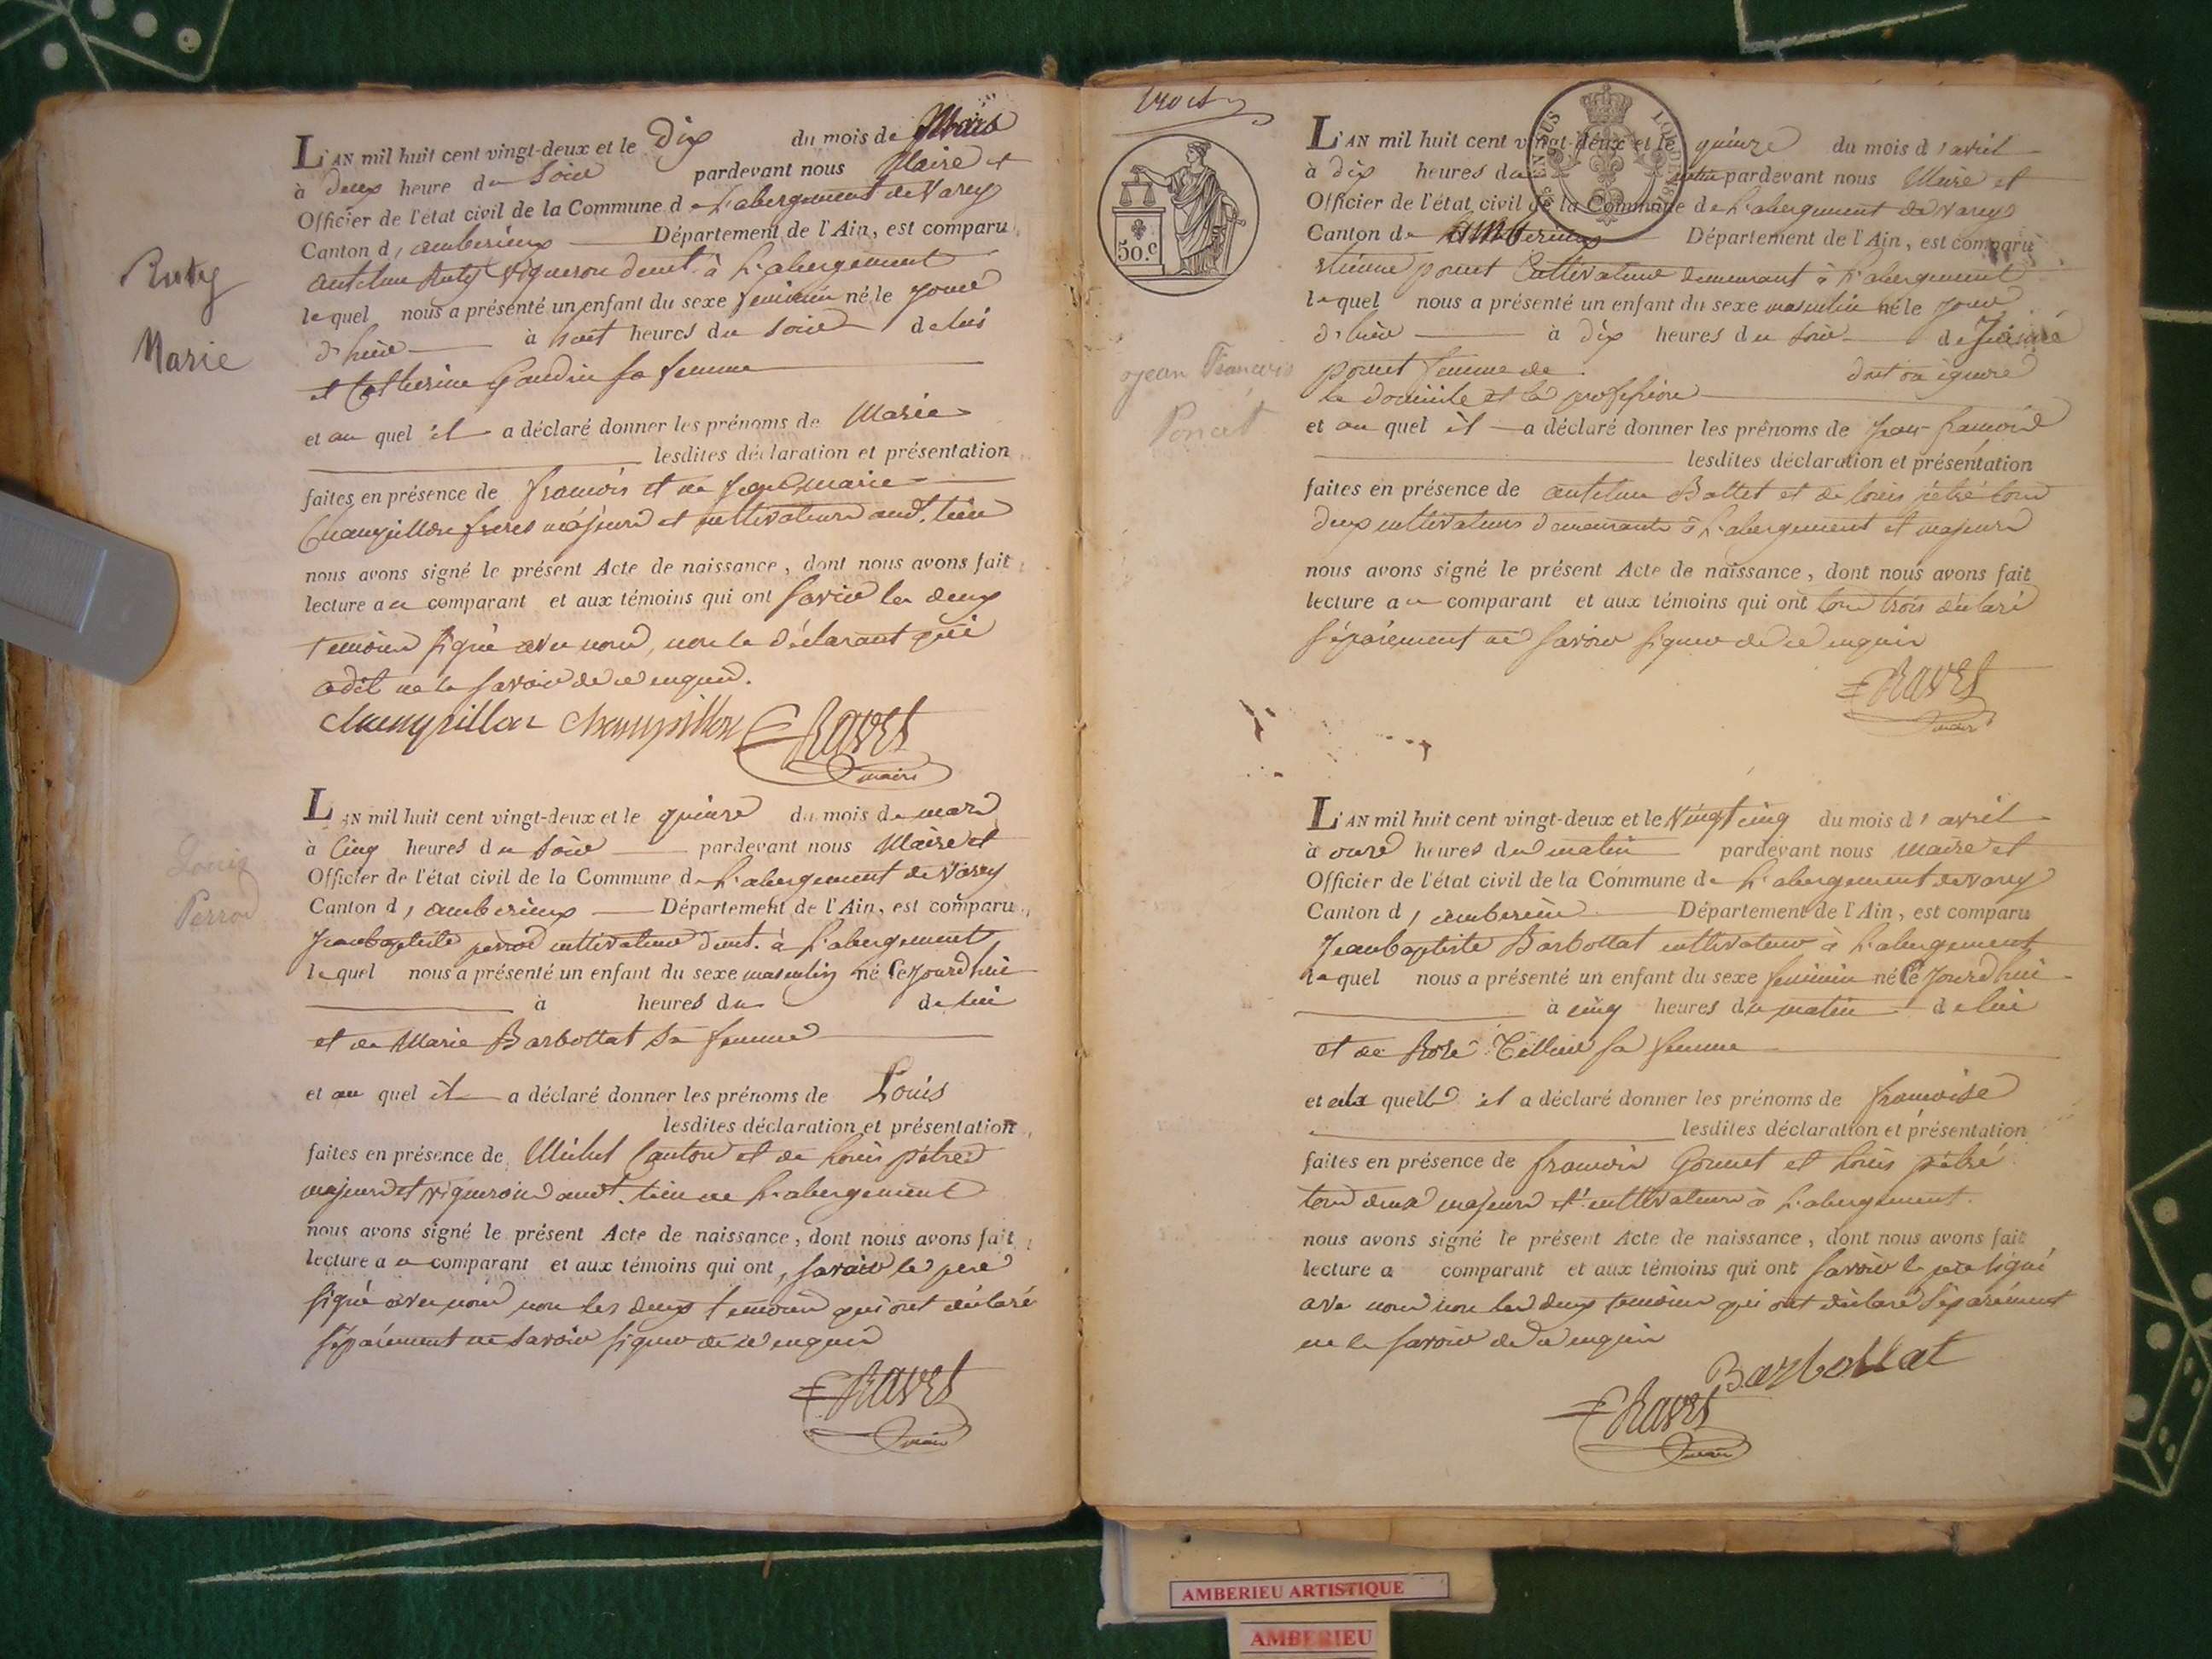 Ruty
Marie
L'AN mil huit cent vingt-deux et le Dix du mois de Mars
à deux heure du Soir pardevant nous Maire et
Officier de l'état civil de la Commune de L'abergement de Varey
Canton d'amberieux Département de l'Ain, est comparu
antelme Ruty Vigneron demt. à L'abergement
lequel nous a présenté un enfant du sexe feminin né le jour
d'hier à heures du soir de lui
et Catherine Gaudin sa femme
et au quel il a déclaré donner les prénoms de Marie
lesdites déclaration et présentation
faites en présence de francois et de marie
Champillon freres majeurs et cultivateurs audt. lieu
nous avons signé le présent Acte de naissance, dont nous avons fait
lecture au comparant et aux témoins qui ont savoir les deux
temoins signé avec nous, non le déclarant qui
a dit ne le savoir de ce enquis.
Champillon Champillon Ravet
maire
Louis
Perrod
L'AN mil huit cent vingt-deux et le quinze du mois de mars
à Cinq heures du soir pardevant nous Maire et
Officier de l'état civil de la Commune de L'abergement de Varey
Canton d'amberieux Département de l'Ain, est comparu
Jeanbaptiste perrod cultivateur demt. à L'abergement
lequel nous a présenté un enfant du sexe masculin né Cejourdhui
à heures du de lui
et de Marie Barbottat sa femme
et au quel il a déclaré donner les prénoms de Louis
lesdites déclaration et présentation
faites en présence de Michel et de Louis pétré
majeurs et vignerons audt. lieu de L'abergement
nous avons signé le présent Acte de naissance, dont nous avons fait
lecture au comparant et aux témoins qui ont, savoir le pere
signé avec nous non les deux temoins qui ont déclaré
séparément ne savoir signer de ce enquis
Ravet
maire
trois
50.c
Jean Francois
Poncet
L'AN mil huit cent vingt-deux et le quinze du mois d'avril
à dix heures du matin pardevant nous Maire et
Officier de l'état civil de la Commune de L'abergement de Varey
Canton de amberieux Département de l'Ain, est comparu
Etienne poncet Cultivateur demeurant à L'abergement
lequel nous a présenté un enfant du sexe masculin né le jour
d'hier à dix heures du soir de
poncet femme de dont on ignore
le domicile et la profession
et au quel il a déclaré donner les prénoms de jean francois
lesdites déclaration et présentation
faites en présence de antelme Battet et de louis pétré tous
deux cultivateurs demeurants à L'abergement et majeurs
nous avons signé le présent Acte de naissance, dont nous avons fait
lecture au comparant et aux témoins qui ont tous trois déclaré
séparément ne savoir signer de ce enquis
Ravet
maire
L'AN mil huit cent vingt-deux et le Vingt cinq du mois d'avril
à onze heures du matin pardevant nous maire et
Officier de l'état civil de la Commune de L'abergement de varey
Canton d'amberieu Département de l'Ain, est comparu
Jeanbaptiste Barbottat cultivateur à L'abergement
lequel nous a présenté un enfant du sexe feminin né Cejourdhui
à cinq heures du matin de lui
et de Rose sa femme
et a la quelle il a déclaré donner les prénoms de francoise
lesdites déclaration et présentation
faites en présence de francois Gonnet et Louis pétré
tous deux majeurs et cultivateurs à L'abergement.
nous avons signé le présent Acte de naissance, dont nous avons fait
lecture a comparant et aux témoins qui ont savoir le pere signé
avec nous non les deux temoins qui ont déclaré séparément
ne le savoir de ce enquis
Barbottat
Ravet
maire
AMBERIEU ARTISTIQUE
AMBERIEU